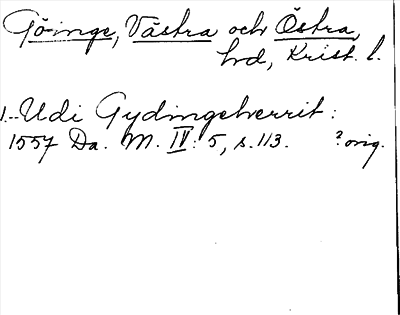 Göinge, Västra och Östra,
hd, Krist. l.
1. Udi Gydingeherrit:
1557 Da. M. IV: 5, s. 113. ? orig.